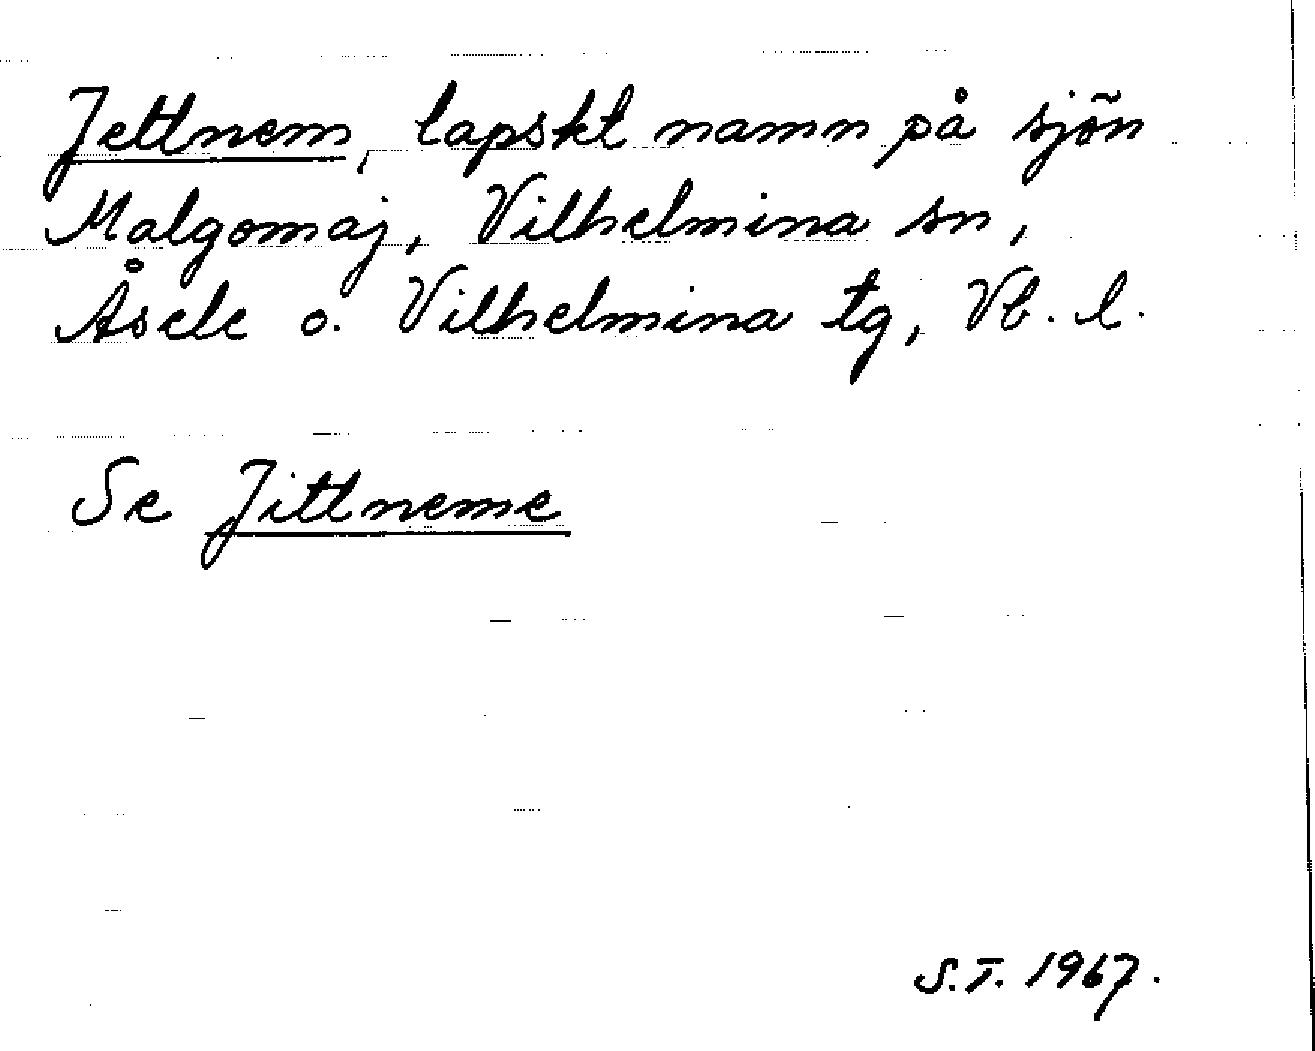 Jettnem, lapskt namn på sjön
Malgomaj, Vilhelmina sn,
Åsele o. Vilhelmina tg, Vb. l.
Se Jittneme
S.T. 1967.